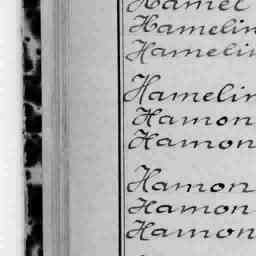 Hamel
Hamelin
Hamelin
Hamelin
Hamon
Hamon
Hamon
Hamon
Hamon